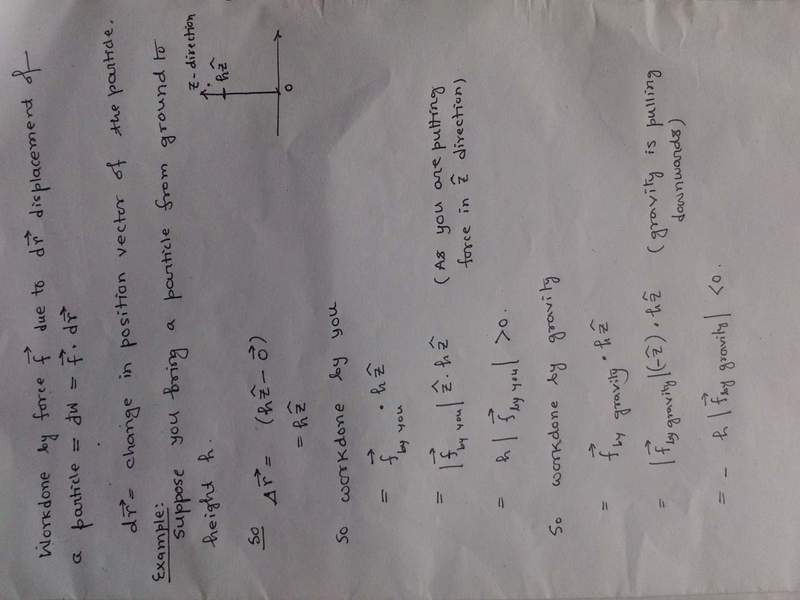 Workdone by force f⃗ due to dr⃗ displacement of
a particle = dW = f⃗ · dr⃗
dr⃗ = change in position vector of the particle.
Example:
Suppose you bring a particle from ground to
height h.
z-direction
hẑ
0
So Δr⃗ = (hẑ - 0⃗)
= hẑ
So workdone by you
= f⃗ by you · hẑ
= |f⃗ by you| ẑ · hẑ (As you are putting
force in ẑ direction)
= h |f⃗ by you| >0.
So workdone by gravity
= f⃗ by gravity · hẑ
= |f⃗ by gravity|(-ẑ) · hẑ (gravity is pulling
downwards)
= - h |f⃗ by gravity| <0.